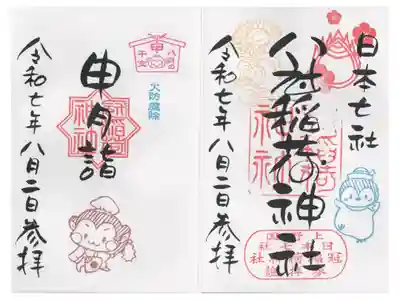 日本七社
稲荷神社
令和七年八月二日参拝
八月の
干支
申
火防魔除
申月詣
令和七年八月二日参拝